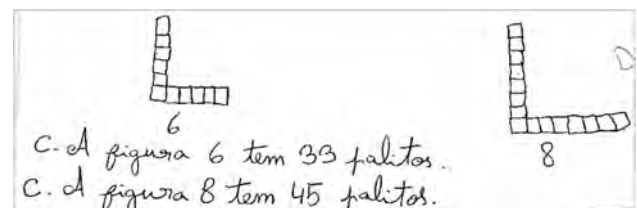 6
8
C. A figura 6 tem 33 palitos.
C. A figura 8 tem 45 palitos.